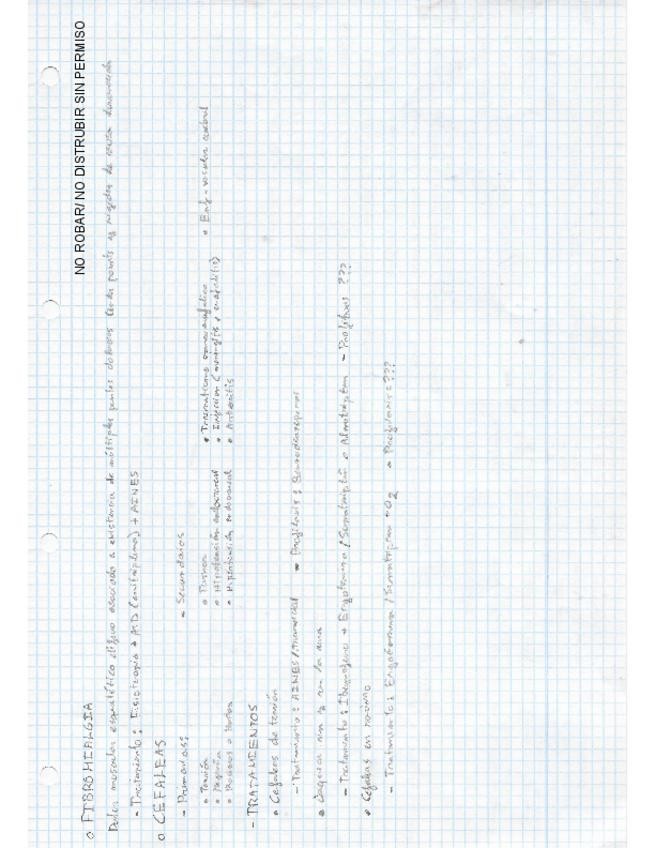 NO ROBAR/ NO DISTRUBIR SIN PERMISO
o FIBROMIALGIA
Dolor musculo esquelético difuso asociado a existencia de múltiples puntos dolorosos
- Tratamiento: Fisioterapia + AD (amitriptilina) + AINES
o CEFALEAS
- Primarias:
- Secundarias
• Tensión
• Migraña
• Racimos o Horton
• Tumor
• Hipotensión
• Hipertensión endocraneal
• Traumatismo craneoencefálico
• Infección (meningitis, encefalitis)
• Arteritis
• Enf. vascular cerebral
- TRATAMIENTOS
• Cefaleas de tensión
- Tratamiento: AINES /
- Profilaxis: Benzodiacepinas
• Jaqueca con o sin aura
- Tratamiento: Ibuprofeno + Ergotamina / Sumatriptán o Almotriptan
- Profilaxis ???
• Cefaleas en racimo
- Tratamiento: Ergotamina / Sumatriptan + O2
- Profilaxis: ???